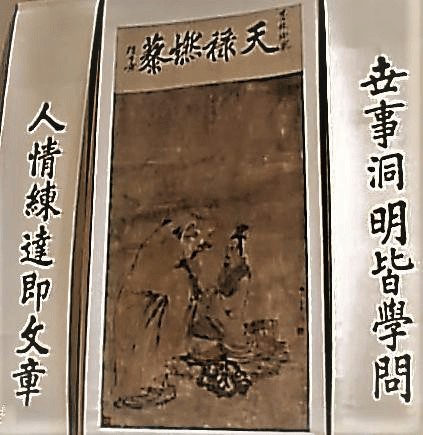 天禄燃藜
世事洞明皆學問
人情練達即文章